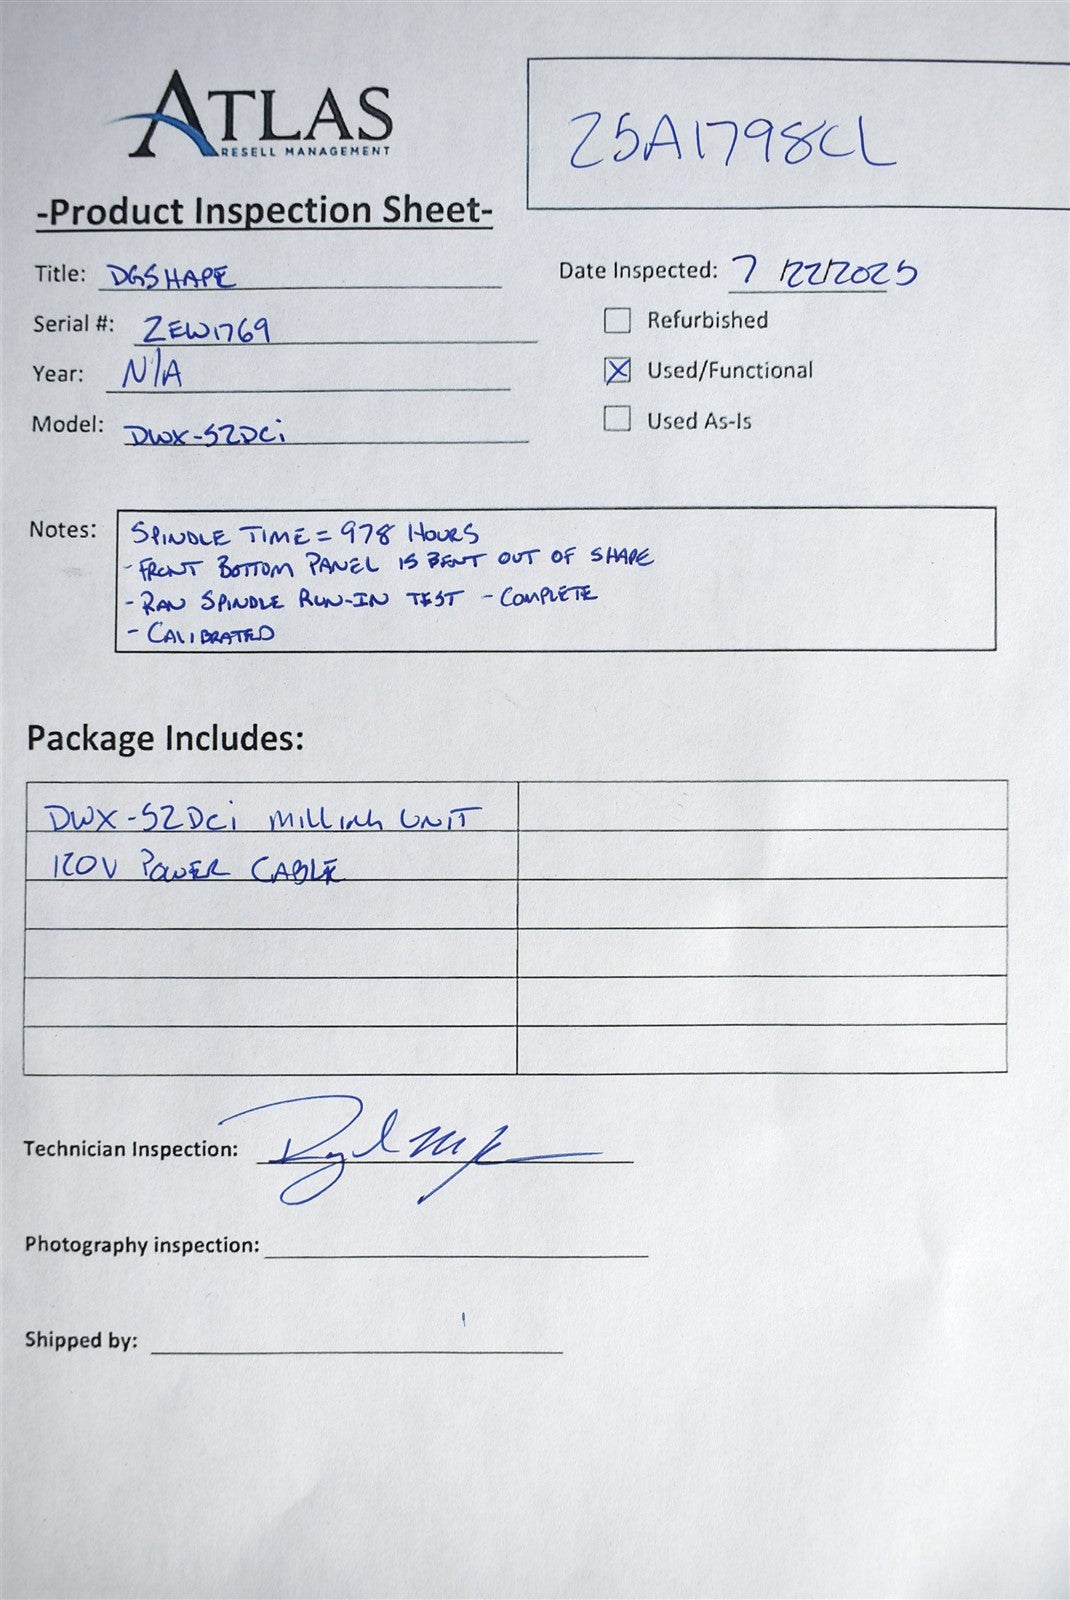 ATLAS
RESELL MANAGEMENT
25A1798CL
-Product Inspection Sheet-
Title: DGSHAPE
Date Inspected: 7/22/2025
Serial #: ZEW1769
Refurbished
Year: N/A
Used/Functional
Model: DWX-52DCi
Used As-Is
Notes: SPINDLE TIME = 978 HOURS
- FRONT BOTTOM PANEL IS BENT OUT OF SHAPE
- RAN SPINDLE RUN-IN TEST - COMPLETE
- CALIBRATED
Package Includes:
DWX-52DCi MILLING UNIT
120V POWER CABLE
Technician Inspection:
Photography inspection:
Shipped by: